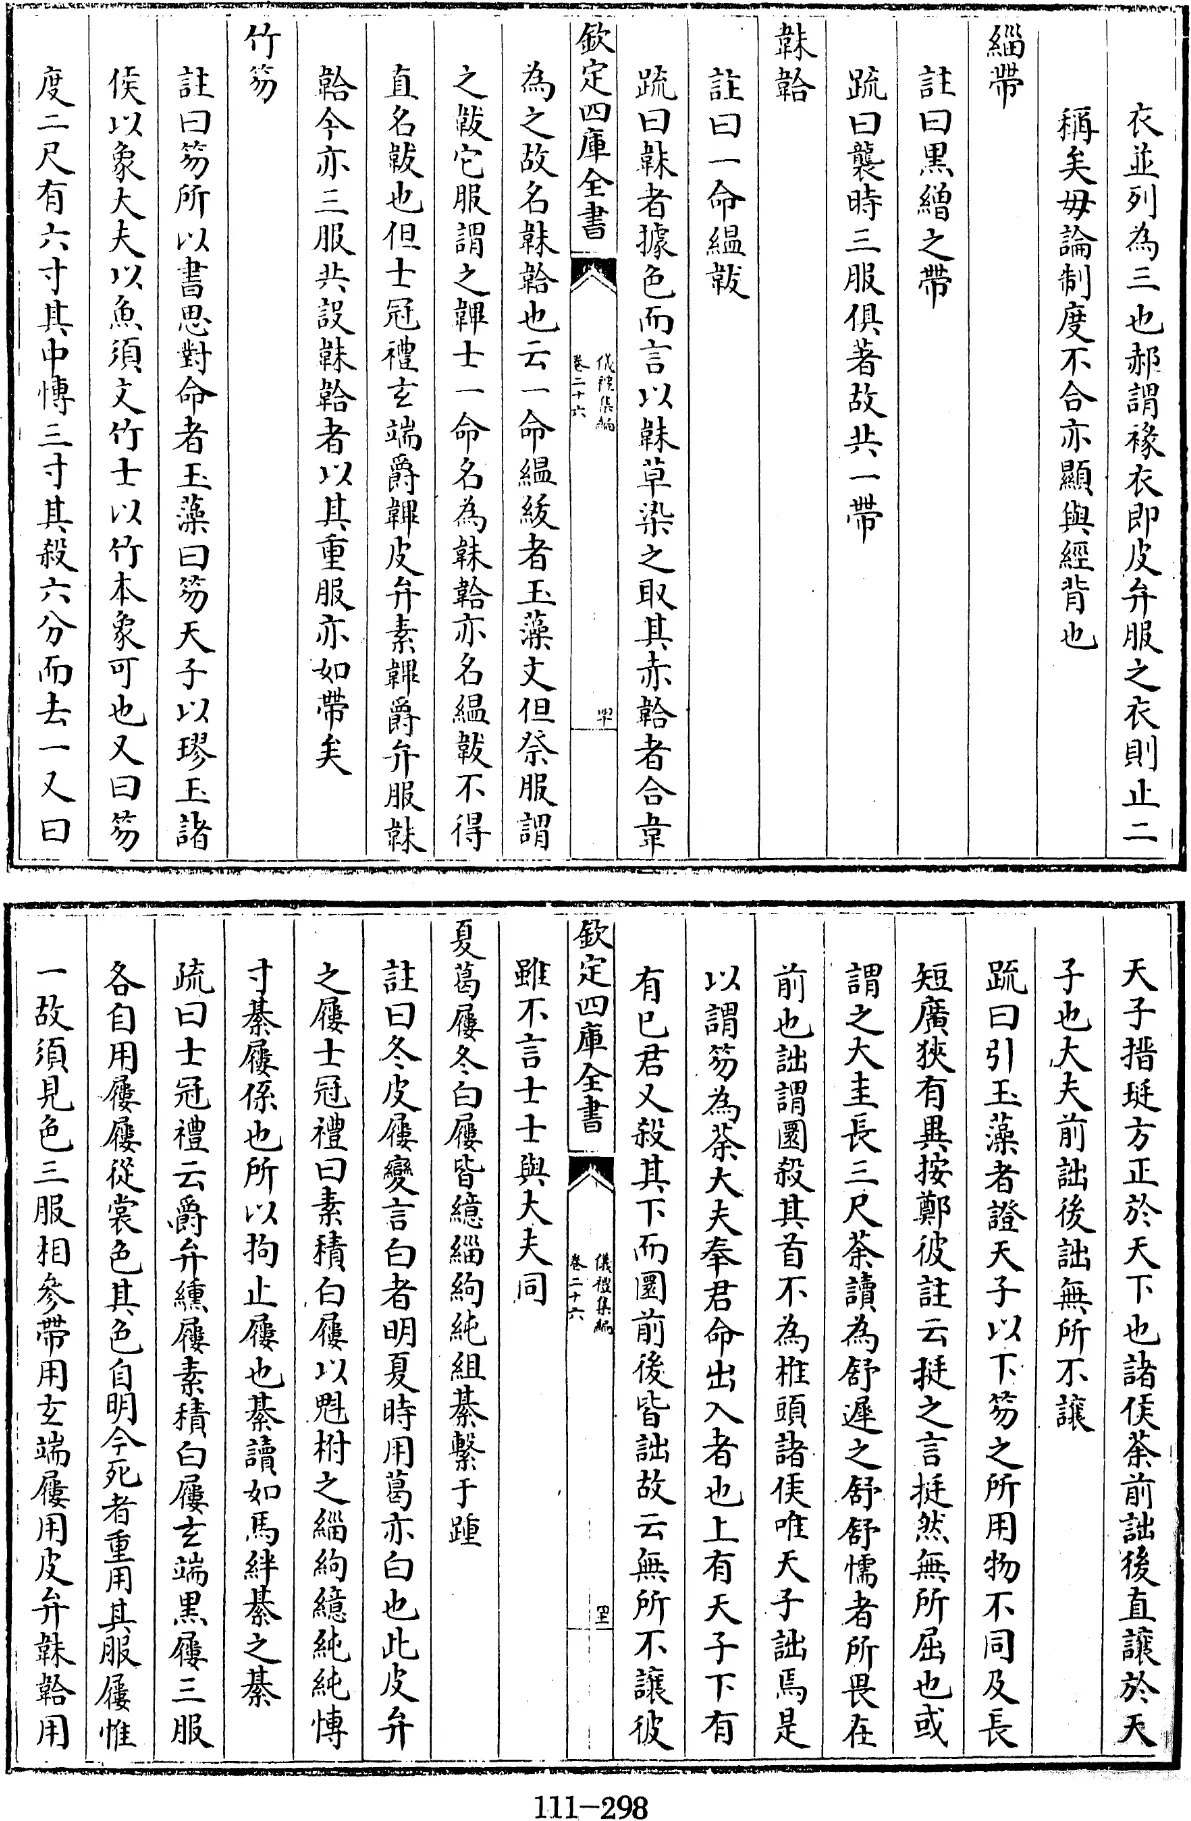 衣並列為三也郝謂褖衣即皮弁服之衣則止二
稱矣毋論制度不合亦顯與經背也
緇帶
註曰黑繒之帶
疏曰襲時三服俱著故共一帶
韎韐
註曰一命縕韍
疏曰韎者據色而言以韎草染之取其赤韐者合韋
欽定四庫全書
儀禮集編
卷二十六
罕
為之故名韎韐也云一命縕紱者玉藻文但祭服謂
之韍它服謂之韠士一命名為韎韐亦名縕韍不得
直名韍也但士冠禮玄端爵韠皮弁素韠爵弁服韎
韐今亦三服共設韎韐者以其重服亦如帶矣
竹笏
註曰笏所以書思對命者玉藻曰笏天子以璆玉諸
侯以象大夫以魚須文竹士以竹本象可也又曰笏
度二尺有六寸其中博三寸其殺六分而去一又曰
天子搢珽方正於天下也諸侯荼前詘後直讓於天
子也大夫前詘後詘無所不讓
疏曰引玉藻者證天子以下笏之所用物不同及長
短廣狹有異按鄭彼註云珽之言挺然無所屈也或
謂之大圭長三尺荼讀為舒遲之舒舒懦者所畏在
前也詘謂圜殺其首不為椎頭諸侯唯天子詘焉是
以謂笏為荼大夫奉君命出入者也上有天子下有
有已君又殺其下而圜前後皆詘故云無所不讓彼
欽定四庫全書
儀禮集編
卷二十六
罒
雖不言士士與大夫同
夏葛屨冬白屨皆繶緇絇純組綦繫于踵
註曰冬皮屨變言白者明夏時用葛亦白也此皮弁
之屨士冠禮曰素積白屨以魁柎之緇絇繶純純博
寸綦屨係也所以拘止屨也綦讀如馬絆綦之綦
疏曰士冠禮云爵弁纁屨素積白屨玄端黑屨三服
各自用屨屨從裳色其色自明今死者重用其服屨惟
一故須見色三服相參帶用玄端屨用皮弁韎韐用
111-298